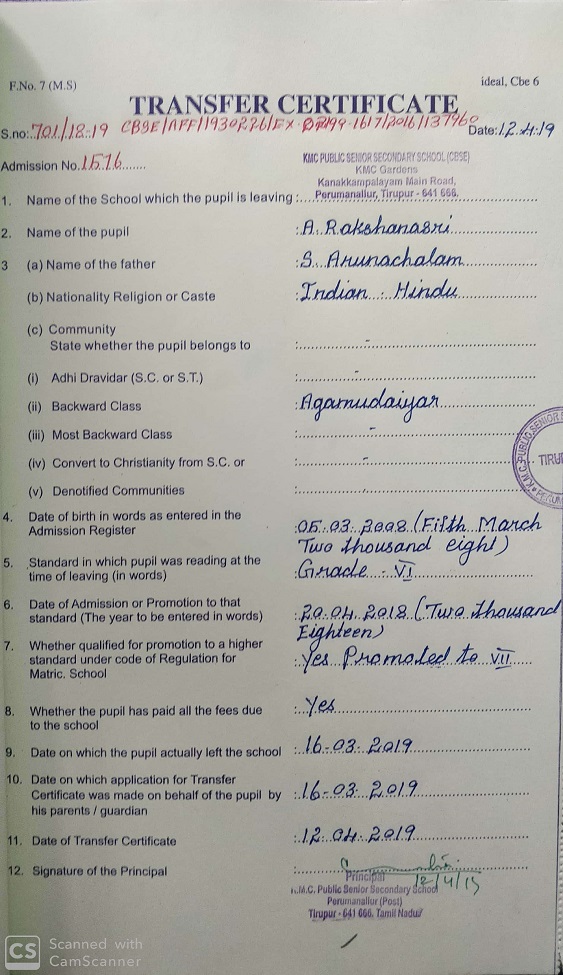 F.No. 7 (M.S)
ideal, Cbe 6
TRANSFER CERTIFICATE
S.no:701/18-19 CBSE/AFF/1930226/EX 1617/2016/137960 Date:12.4.19
Admission No.1576
KMC PUBLIC SENIOR SECONDARY SCHOOL (CBSE)
KMC Gardens
Kanakkampalayam Main Road,
Perumanallur, Tirupur - 641 666.
1. Name of the School which the pupil is leaving :
2. Name of the pupil : A. Rakshanasri
3 (a) Name of the father : S. Arunachalam
(b) Nationality Religion or Caste : Indian - Hindu
(c) Community
State whether the pupil belongs to : -
(i) Adhi Dravidar (S.C. or S.T.) : -
(ii) Backward Class : Agamudaiyar
(iii) Most Backward Class : -
(iv) Convert to Christianity from S.C. or : -
(v) Denotified Communities :
K.M.C. PUBLIC SENIOR
TIRU
4. Date of birth in words as entered in the : 05.03.2008 (Fifth March
Admission Register Two thousand eight)
5. Standard in which pupil was reading at the
time of leaving (in words) : Grade - VI
6. Date of Admission or Promotion to that : 20.04.2018 (Two thousand
standard (The year to be entered in words) Eighteen)
7. Whether qualified for promotion to a higher
standard under code of Regulation for : Yes Promoted to VII
Matric. School
8. Whether the pupil has paid all the fees due : Yes
to the school
9. Date on which the pupil actually left the school : 16-03-2019
10. Date on which application for Transfer
Certificate was made on behalf of the pupil by : 16-03-2019
his parents / guardian
11. Date of Transfer Certificate : 12.04.2019
12. Signature of the Principal :
Principal 12/4/19
K.M.C. Public Senior Secondary School
Perumanallur (Post)
Tirupur - 641 666, Tamil Nadu
CS Scanned with
CamScanner